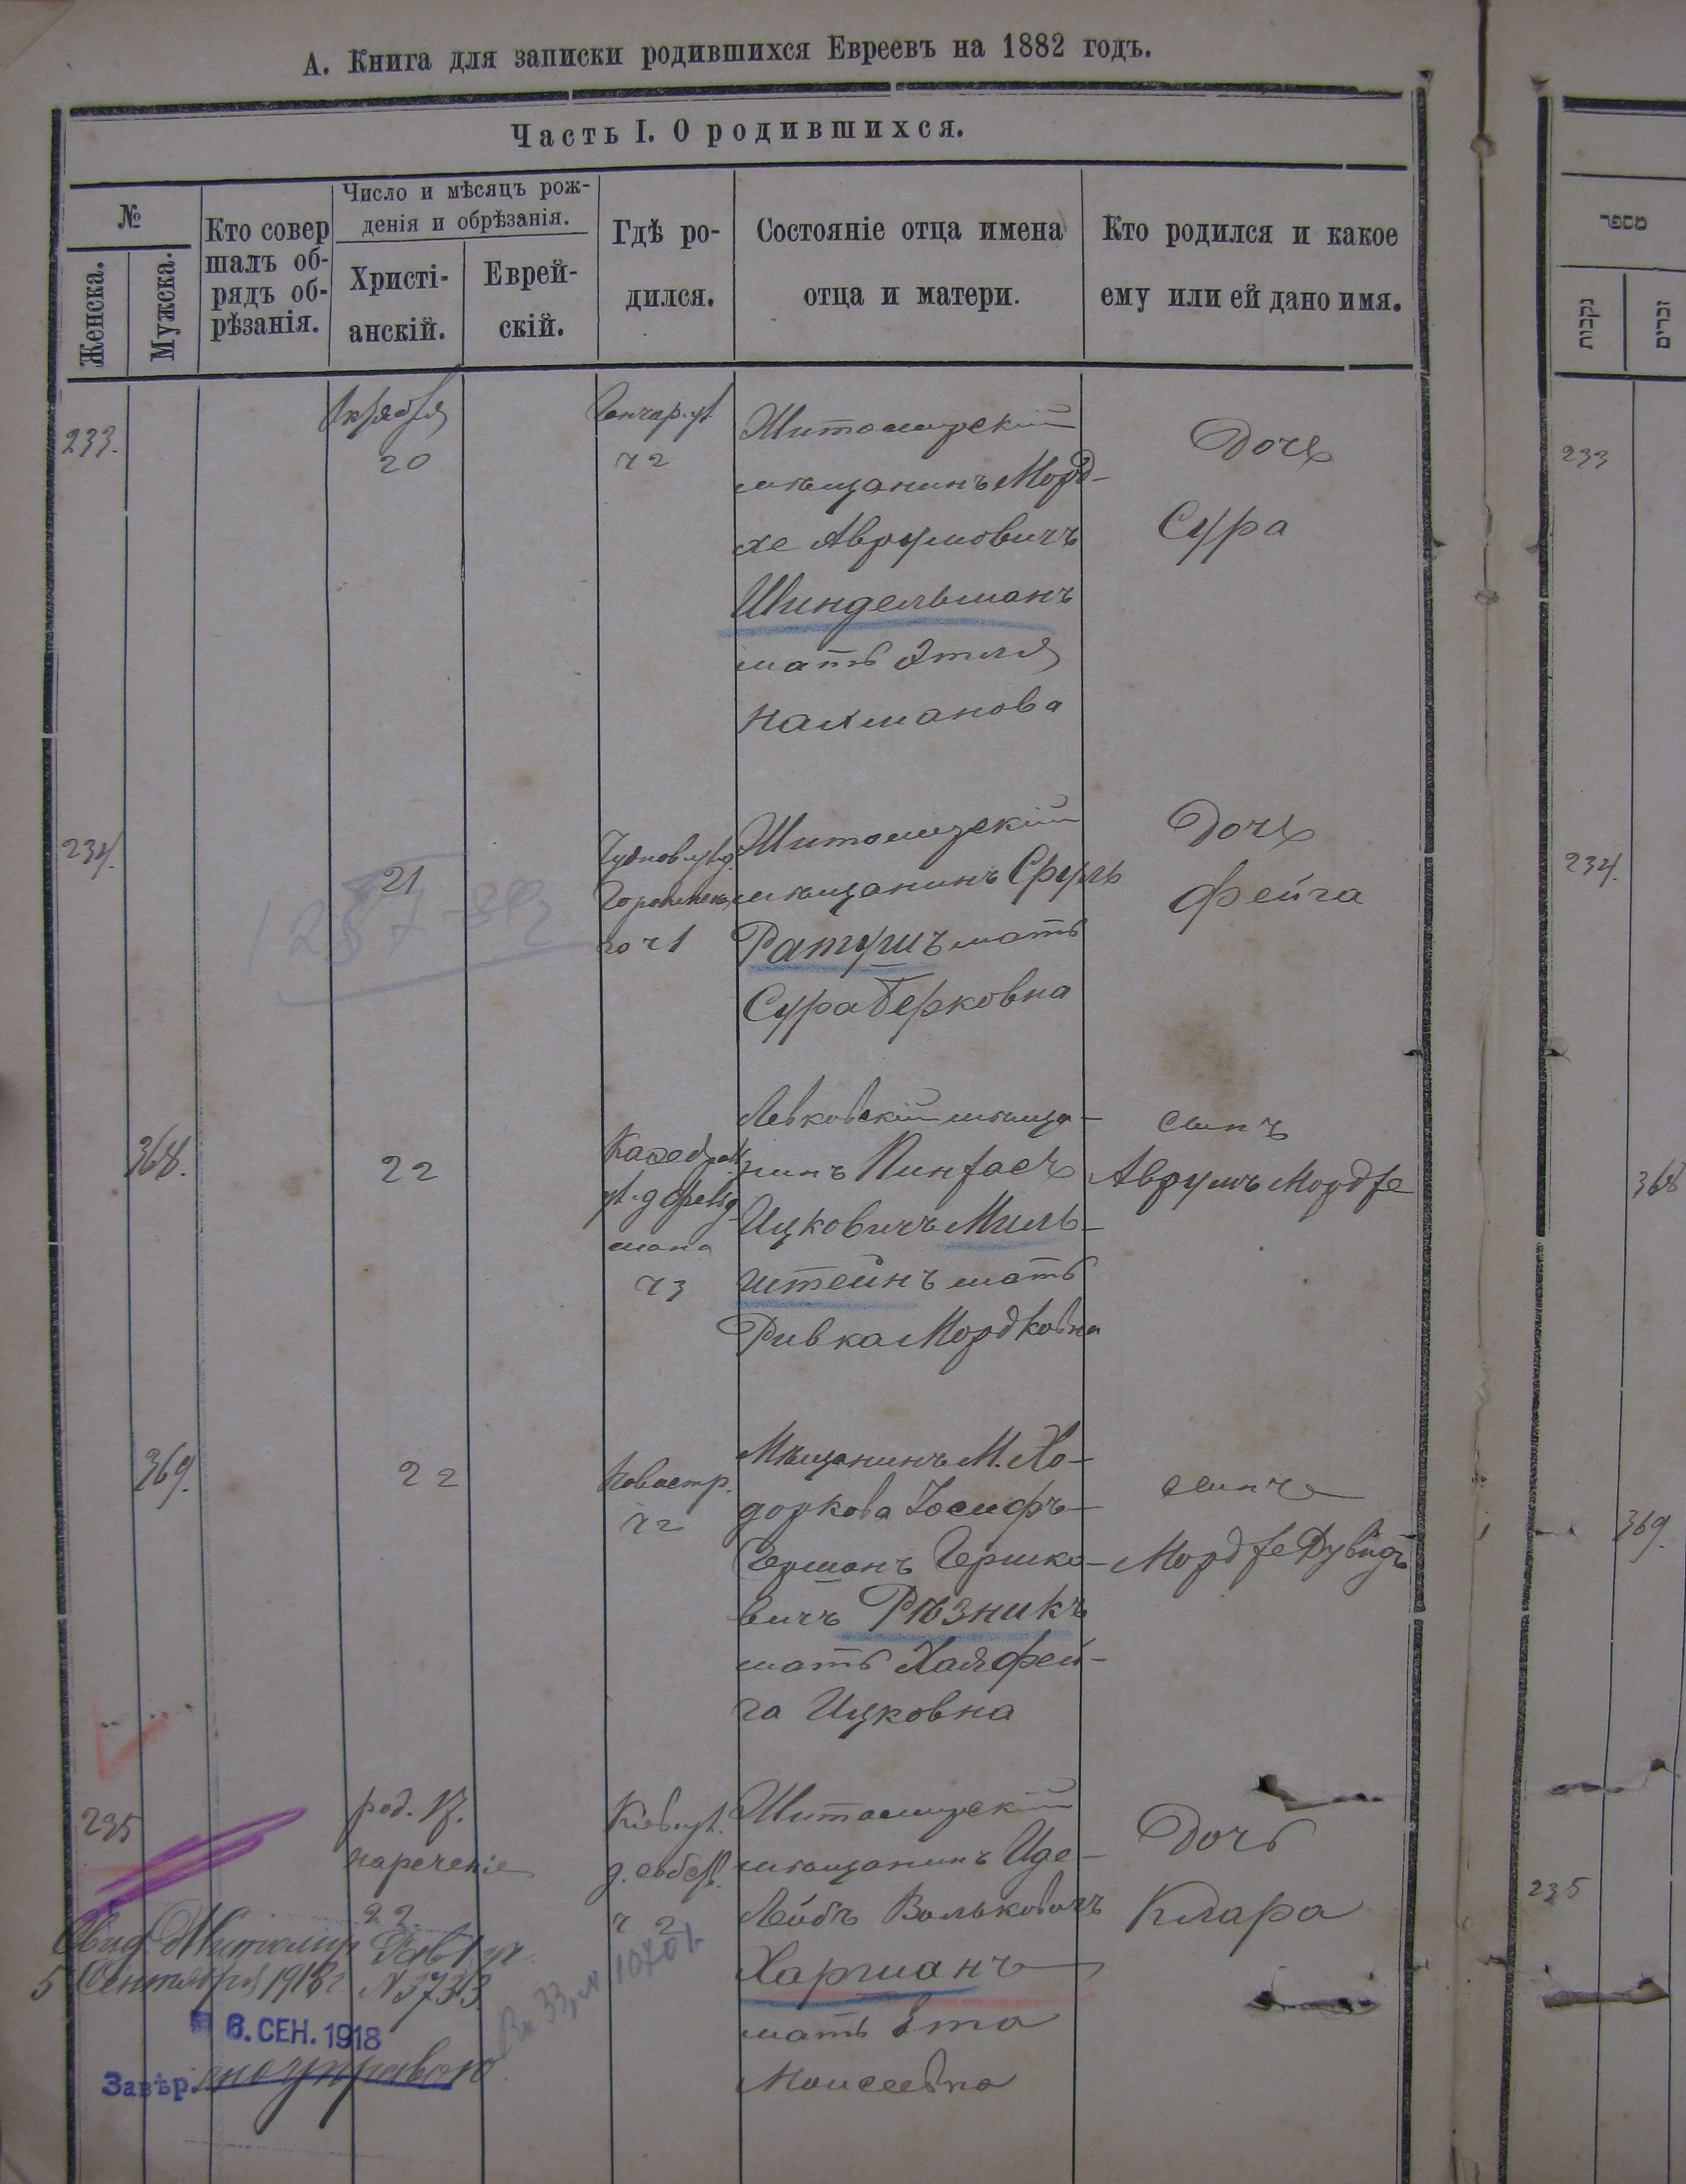 А. Книга для записки родившихся Евреевъ на 1882 годъ.
Часть I. О родившихся.
№
Женска.
Мужска.
Кто совер
шалъ об-
рядъ об-
рѣзанія.
Число и мѣсяцъ рож-
денія и обрѣзанія.
Христі-
анскій.
Еврей-
скій.
Гдѣ ро-
дился.
Состояніе отца имена
отца и матери.
Кто родился и какое
ему или ей дано имя.
מספר
נקבות
זכרים
233.
Октября
20
Гончар. ул.
ч 2
Житомирскій
мѣщанинъ Морд-
хе Аврумовичъ
Шиндельманъ
мать Этля
Нахманова
Дочь
Сура
233
234.
21
Чуднов. ул. д.
го ч 1
Житомирскій
мѣщанинъ Сруль
Ратушъ мать
Сура Берковна
Дочь
Фейга
234.
368.
22
Кафедрал.
ул. д. Фельд-
мана
ч 3
Левковскій мѣща-
нинъ Пинхасъ
Ицковичъ Миль-
штейнъ мать
Ривка Мордковна
сынъ
Аврумъ Мордхе
368
369.
22
Новостр.
ч 2
Мѣщанинъ М. Хо-
доркова Іосифъ-
Гершонъ Гершко-
вичъ Рѣзникъ
мать Хая Фей-
га Ицковна
сынъ
Мордхе Дувидъ
369.
235
род. 17.
нареченіе
22.
Кіев. ул.
д. собств.
ч 2
Житомирскій
мѣщанинъ Иде-
Лейбъ Вольковичъ
Харманъ
мать Ета
Моисеевна
Дочь
Клара
235
Свид. Житомир. Равв. уп.
5 Сентября 1918 г. № 3733.
6. СЕН. 1918
Завѣр.